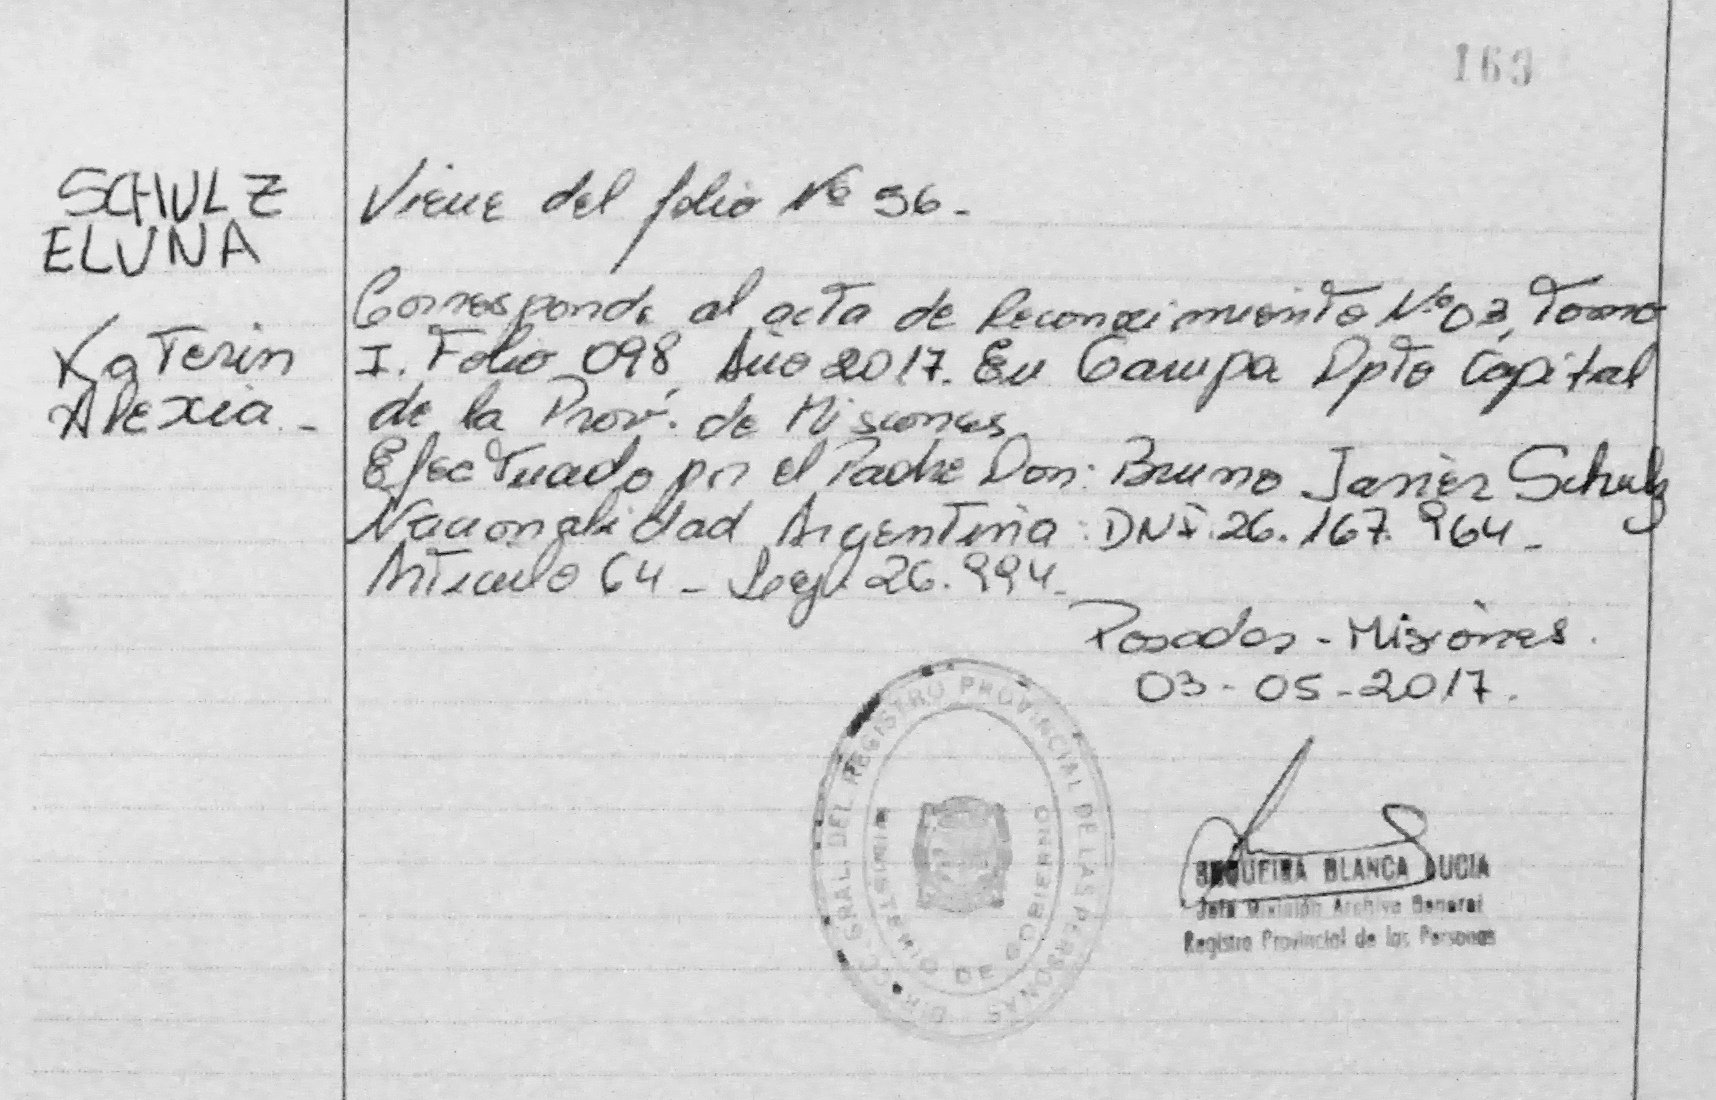 163
SCHULZ
ELUNA
Katerin
Alexia -
Viene del folio Nº 56.-
Corresponde al acta de Reconocimiento Nº 03, Tomo
I. Folio 098 Año 2017. En Garupa Dpto Capital
de la Prov. de Misiones
Efectuado por el Padre Don: Bruno Javier Schulz
Nacionalidad Argentina: DNI. 26.167.964-
Articulo 64 - Ley. 26.994-
Posadas - Misiones.
03-05-2017.
DIRECC. GRAL. DEL REGISTRO PROVINCIAL DE LAS PERSONAS
MINISTERIO DE GOBIERNO
SEQUEIRA BLANCA LUCIA
Jefa División Archivo General
Registro Provincial de las Personas